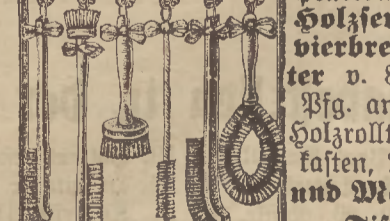 Holzse
vierbre
ter v.
Pfg. an
Holzrollt
kasten,
und M